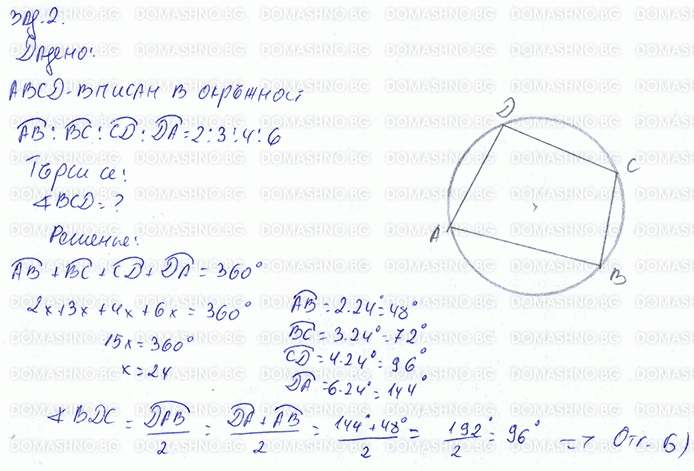 Зад.2.
Дадено:
ABCD-вписан в окръжност
AB : BC : CD : DA = 2:3:4:6
Търси се:
∢BCD = ?
Решение:
AB + BC + CD + DA = 360°
2x+3x+4x+6x = 360°
15x = 360°
x = 24
AB = 2.24° = 48°
BC = 3.24° = 72°
CD = 4.24° = 96°
DA = 6.24° = 144°
∢BDC = DAB/2 = DA+AB/2 = 144°+48°/2 = 192°/2 = 96° => Отг. Б)
D
C
A
B
DOMASHNO.BG